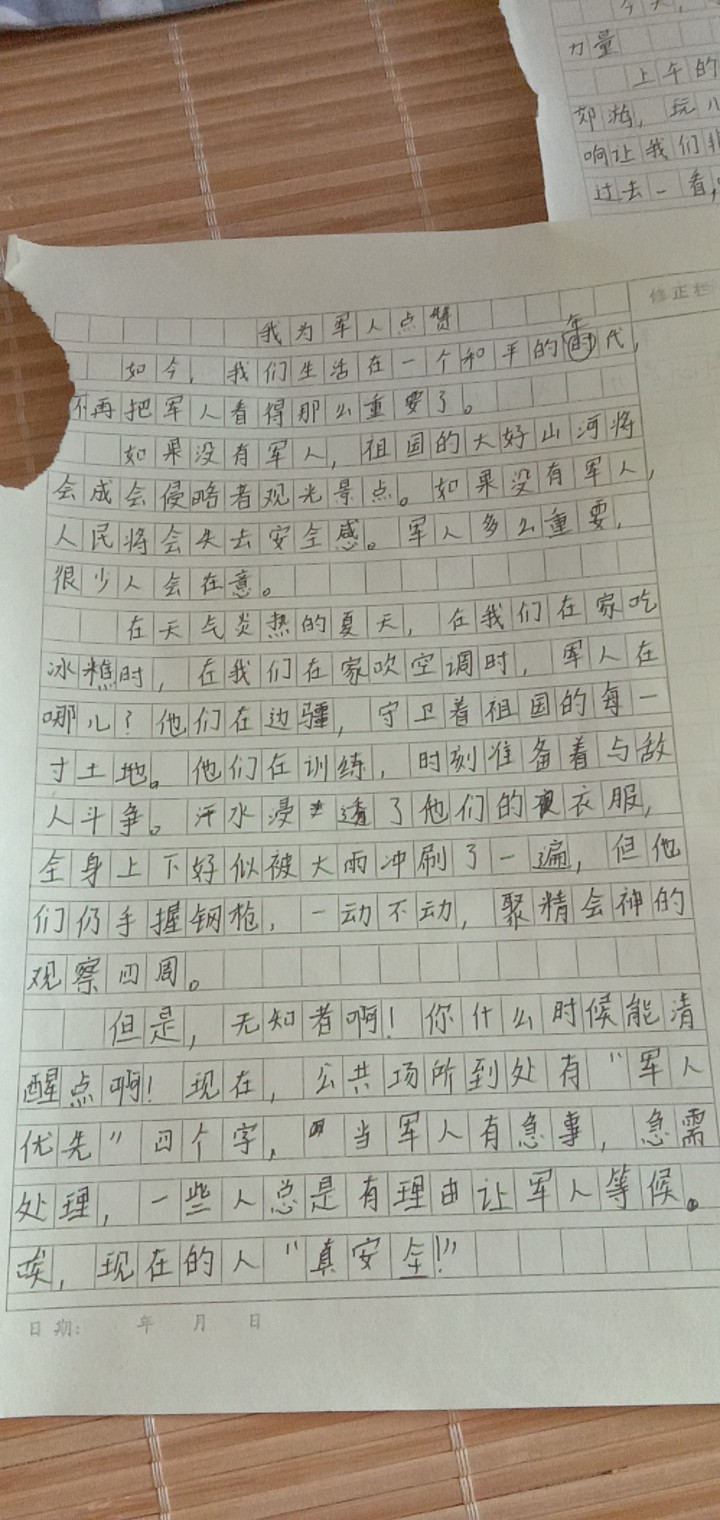 今天,
力量
上午的
郊游,玩儿
响让我们非
过去一看,
修正栏
我为军人点赞
如今,我们生活在一个和平的年代,
不再把军人看得那么重要了。
如果没有军人,祖国的大好山河将
会成会侵略者观光景点。如果没有军人,
人民将会失去安全感。军人多么重要,
很少人会在意。
在天气炎热的夏天,在我们在家吃
冰樵时,在我们在家吹空调时,军人在
哪儿?他们在边疆,守卫着祖国的每一
寸土地。他们在训练,时刻准备着与敌
人斗争。汗水浸透了他们的衣服,
全身上下好似被大雨冲刷了一遍,但他
们仍手握钢枪,一动不动,聚精会神的
观察四周。
但是,无知者啊!你什么时候能清
醒点啊!现在,公共场所到处有"军人
优先"四个字,当军人有急事,急需
处理,一些人总是有理由让军人等候。
唉,现在的人"真安全!"
日期: 年 月 日